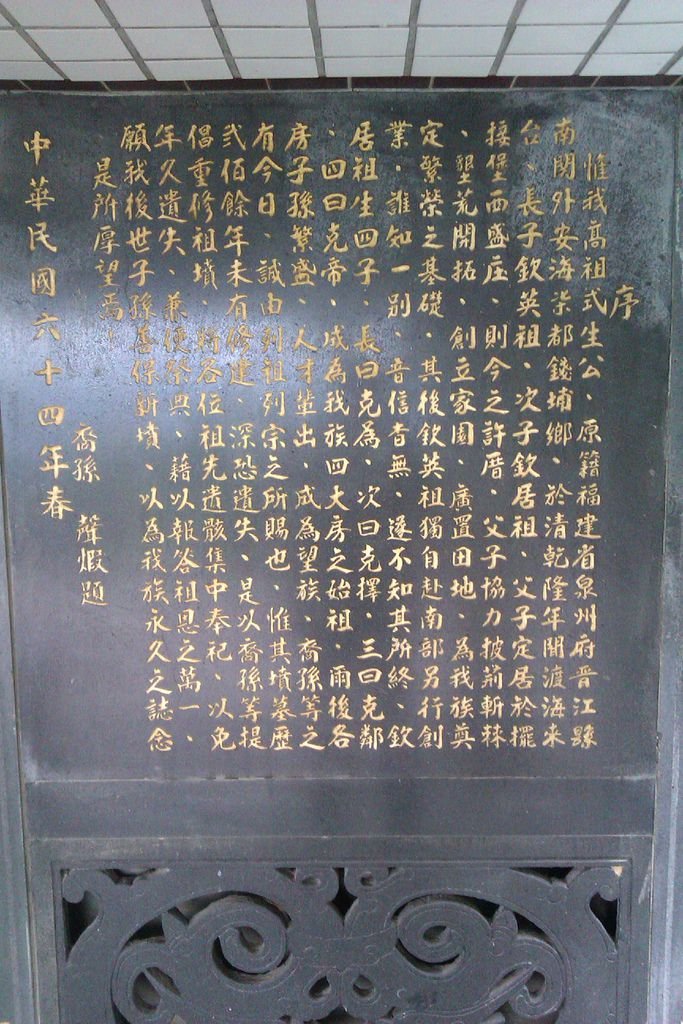 序
惟我高祖式生公、原籍福建省泉州府晋江縣
南関外安海柒都錢埔鄉、於清乾隆年間渡海來
台、長子欽英祖、次子欽居祖、父子定居於擺
接堡西盛庄、則今之許厝、父子協力披荊斬棘
、墾荒開拓、創立家園、廣置田地、為我族奠
定繁榮之基礎、其後欽英祖獨自赴南部另行創
業、誰知一別、音信杳無、遂不知其所終、欽
居祖生四子、長曰克為、次曰克擇、三曰克鄰
、四曰克帝、成為我族四大房之始祖、爾後各
房子孫繁盛、人才輩出、成為望族、裔孫等之
有今日、誠由列祖列宗之所賜也、惟其墳墓歷
弍佰餘年未有修建、深恐遺失、是以裔孫等提
倡重修祖墳、將各位祖先遺骸集中奉祀、以免
年久遺失、兼便祭典、藉以報答祖恩之萬一、
願我後世子孫善保新墳、以為我族永久之誌念
是所厚望焉、
裔孫 聲煆題
中華民國六十四年春